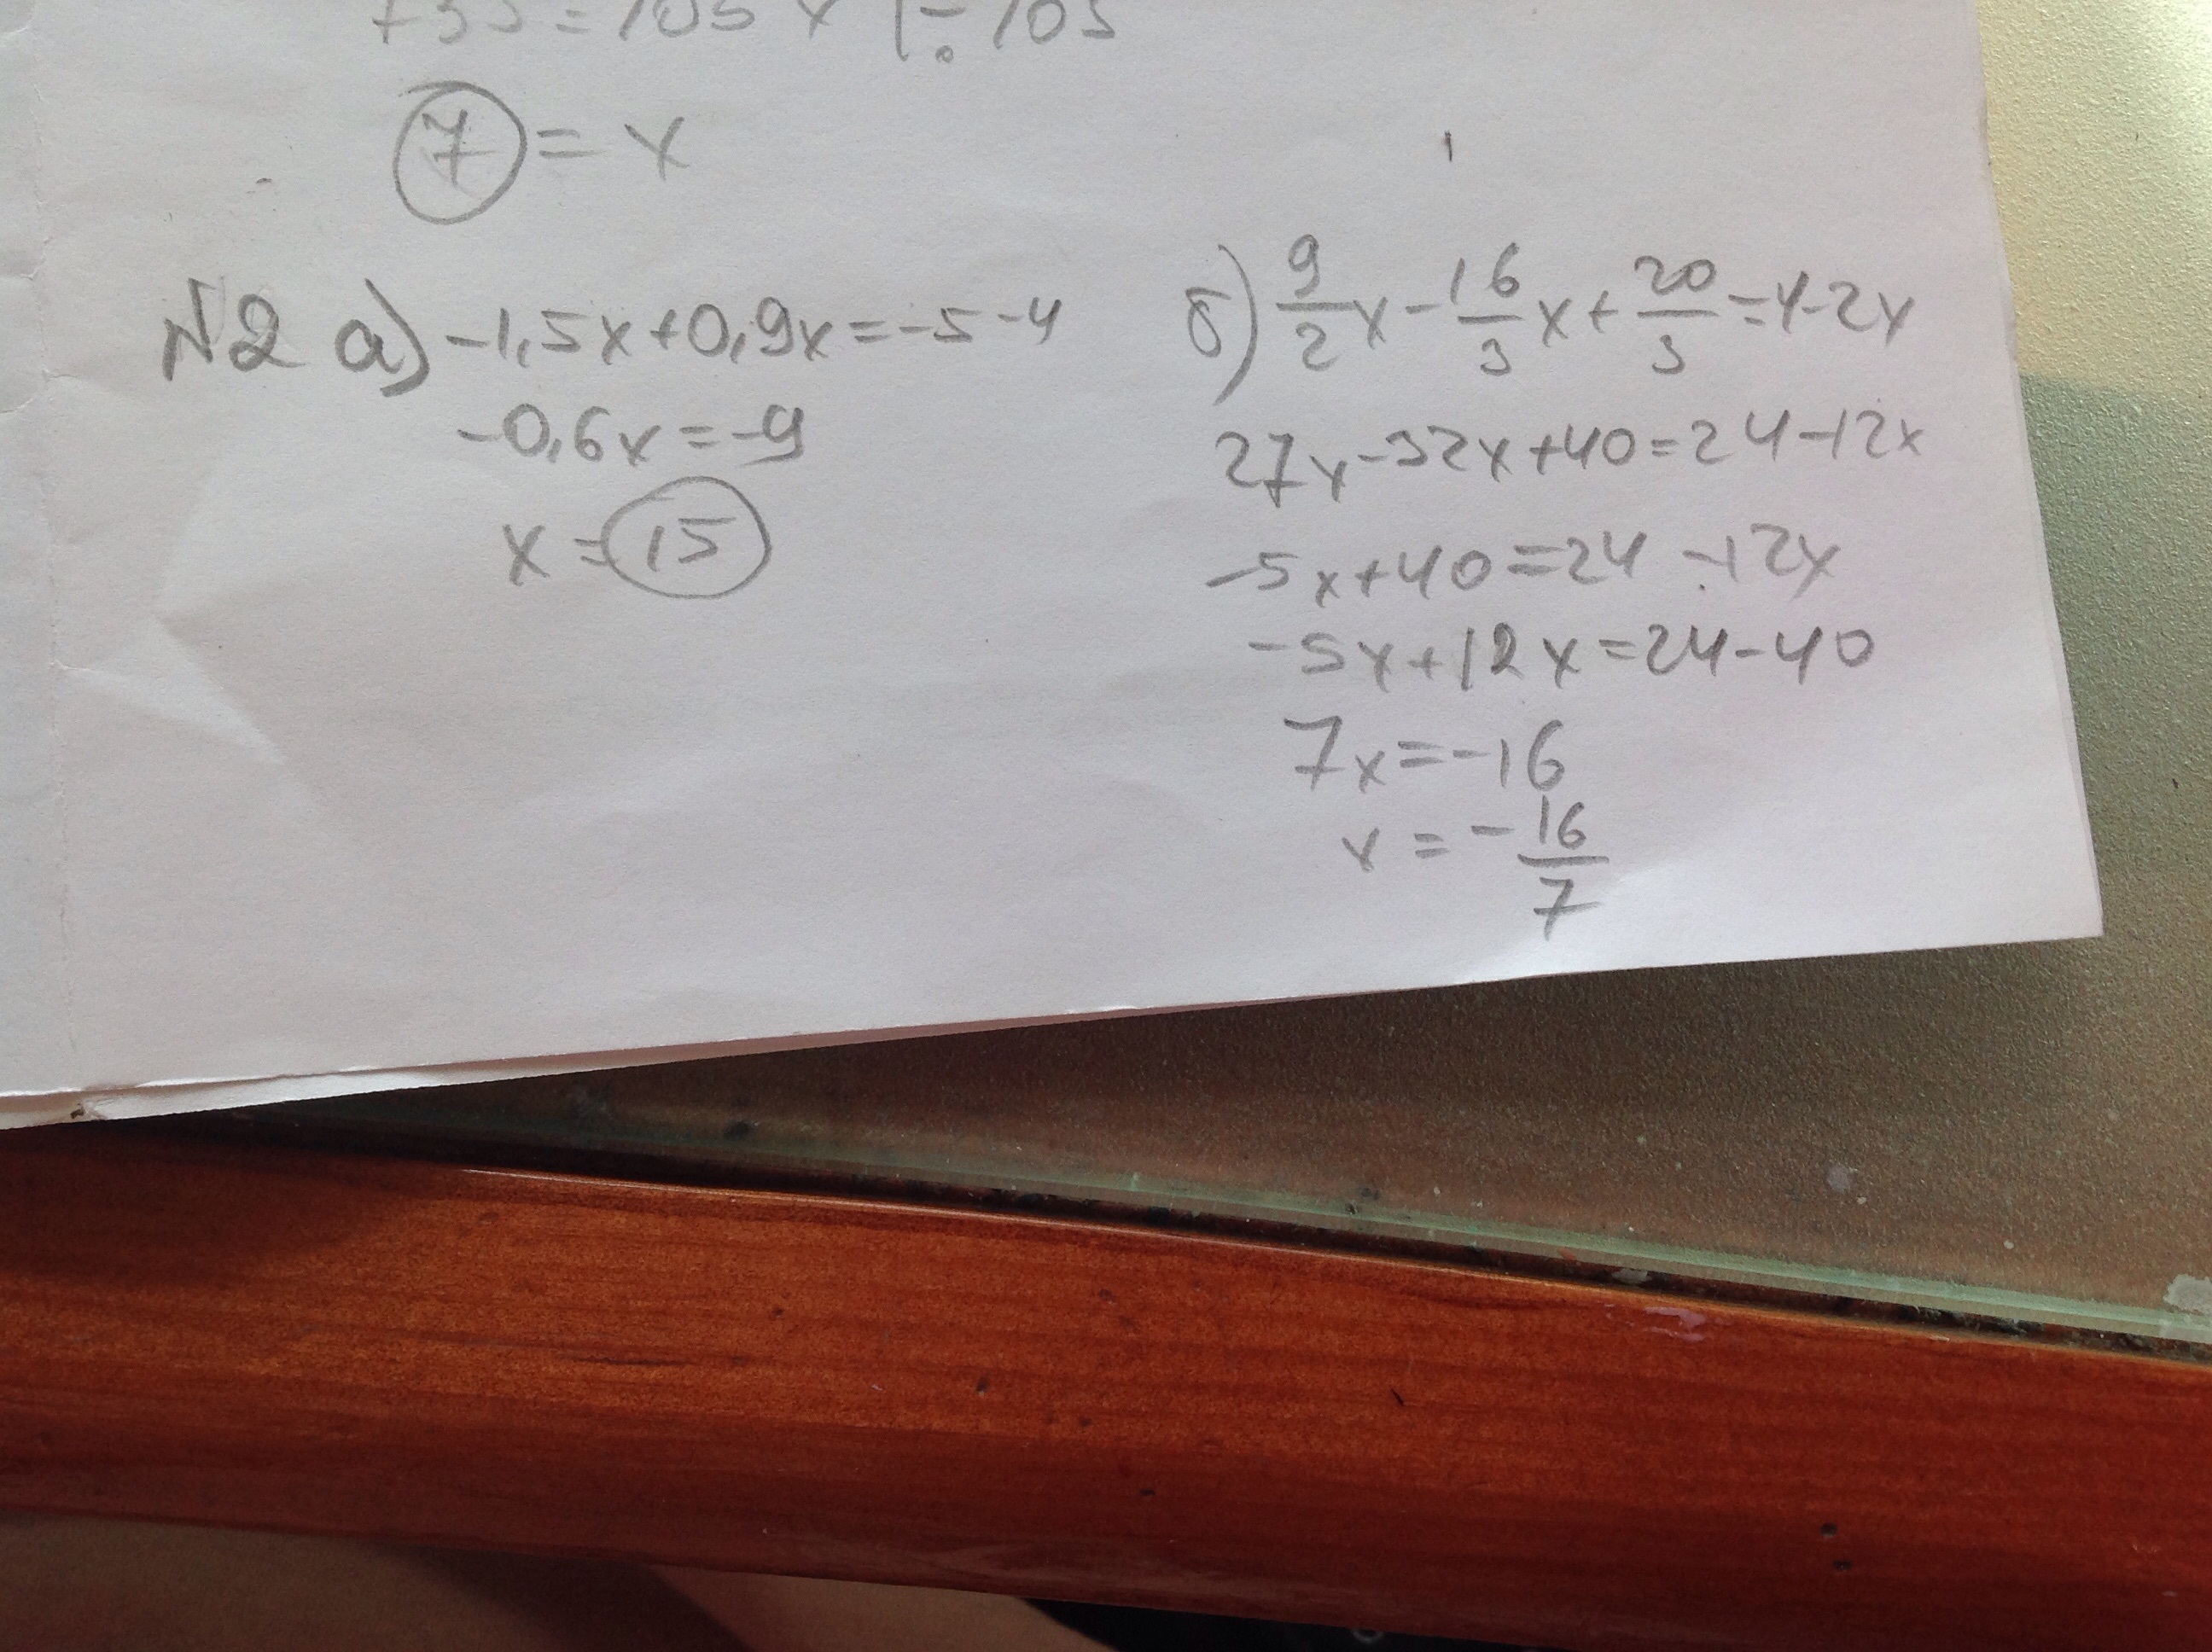 735=105x |÷105
7=x
№2 а) -1,5x+0,9x=-5-4
-0,6x=-9
x=15
б) 9/2x-16/3x+20/3=4-2x
27x-32x+40=24-12x
-5x+40=24-12x
-5x+12x=24-40
7x=-16
x=-16/7